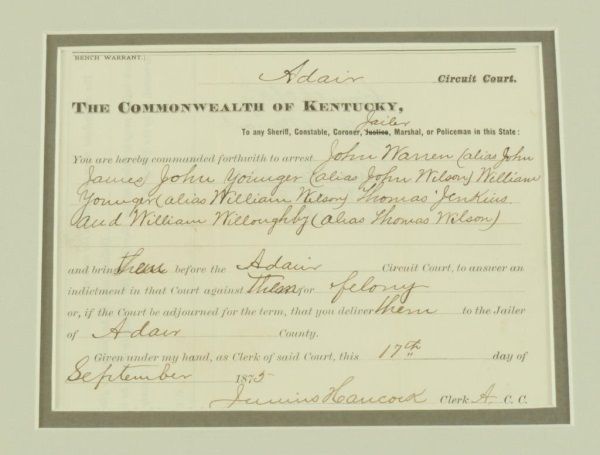 [BENCH WARRANT.]
Adair Circuit Court.
THE COMMONWEALTH OF KENTUCKY,
Jailer
To any Sheriff, Constable, Coroner, Justice, Marshal, or Policeman in this State:
You are hereby commanded forthwith to arrest John Warren (alias John
James John Younger (alias John Wilson) William
Younger (alias William Wilson) Thomas Jenkins
and William Willoughby (alias Thomas Wilson)
and bring them before the Adair Circuit Court, to answer an
indictment in that Court against them for felony
or, if the Court be adjourned for the term, that you deliver them to the Jailer
of Adair County.
Given under my hand, as Clerk of said Court, this 17th day of
September 1875
Junius Hancock Clerk A. C. C.